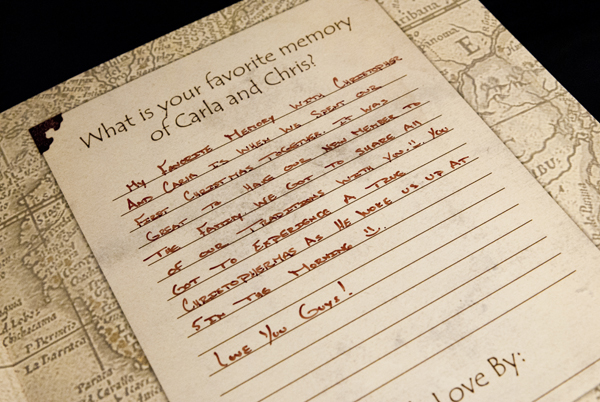 What is your favorite memory
of Carla and Chris?
My Favorite Memory With Christopher
And Carla is when we spent our
First Christmas together. It was
Great to have our new member to
the family. We got to share all
of our traditions with you!! You
got to experience a true
Christophermas as he woke us up at
5 in the morning !!
Love You Guys!
Love By:
E
Chickacama